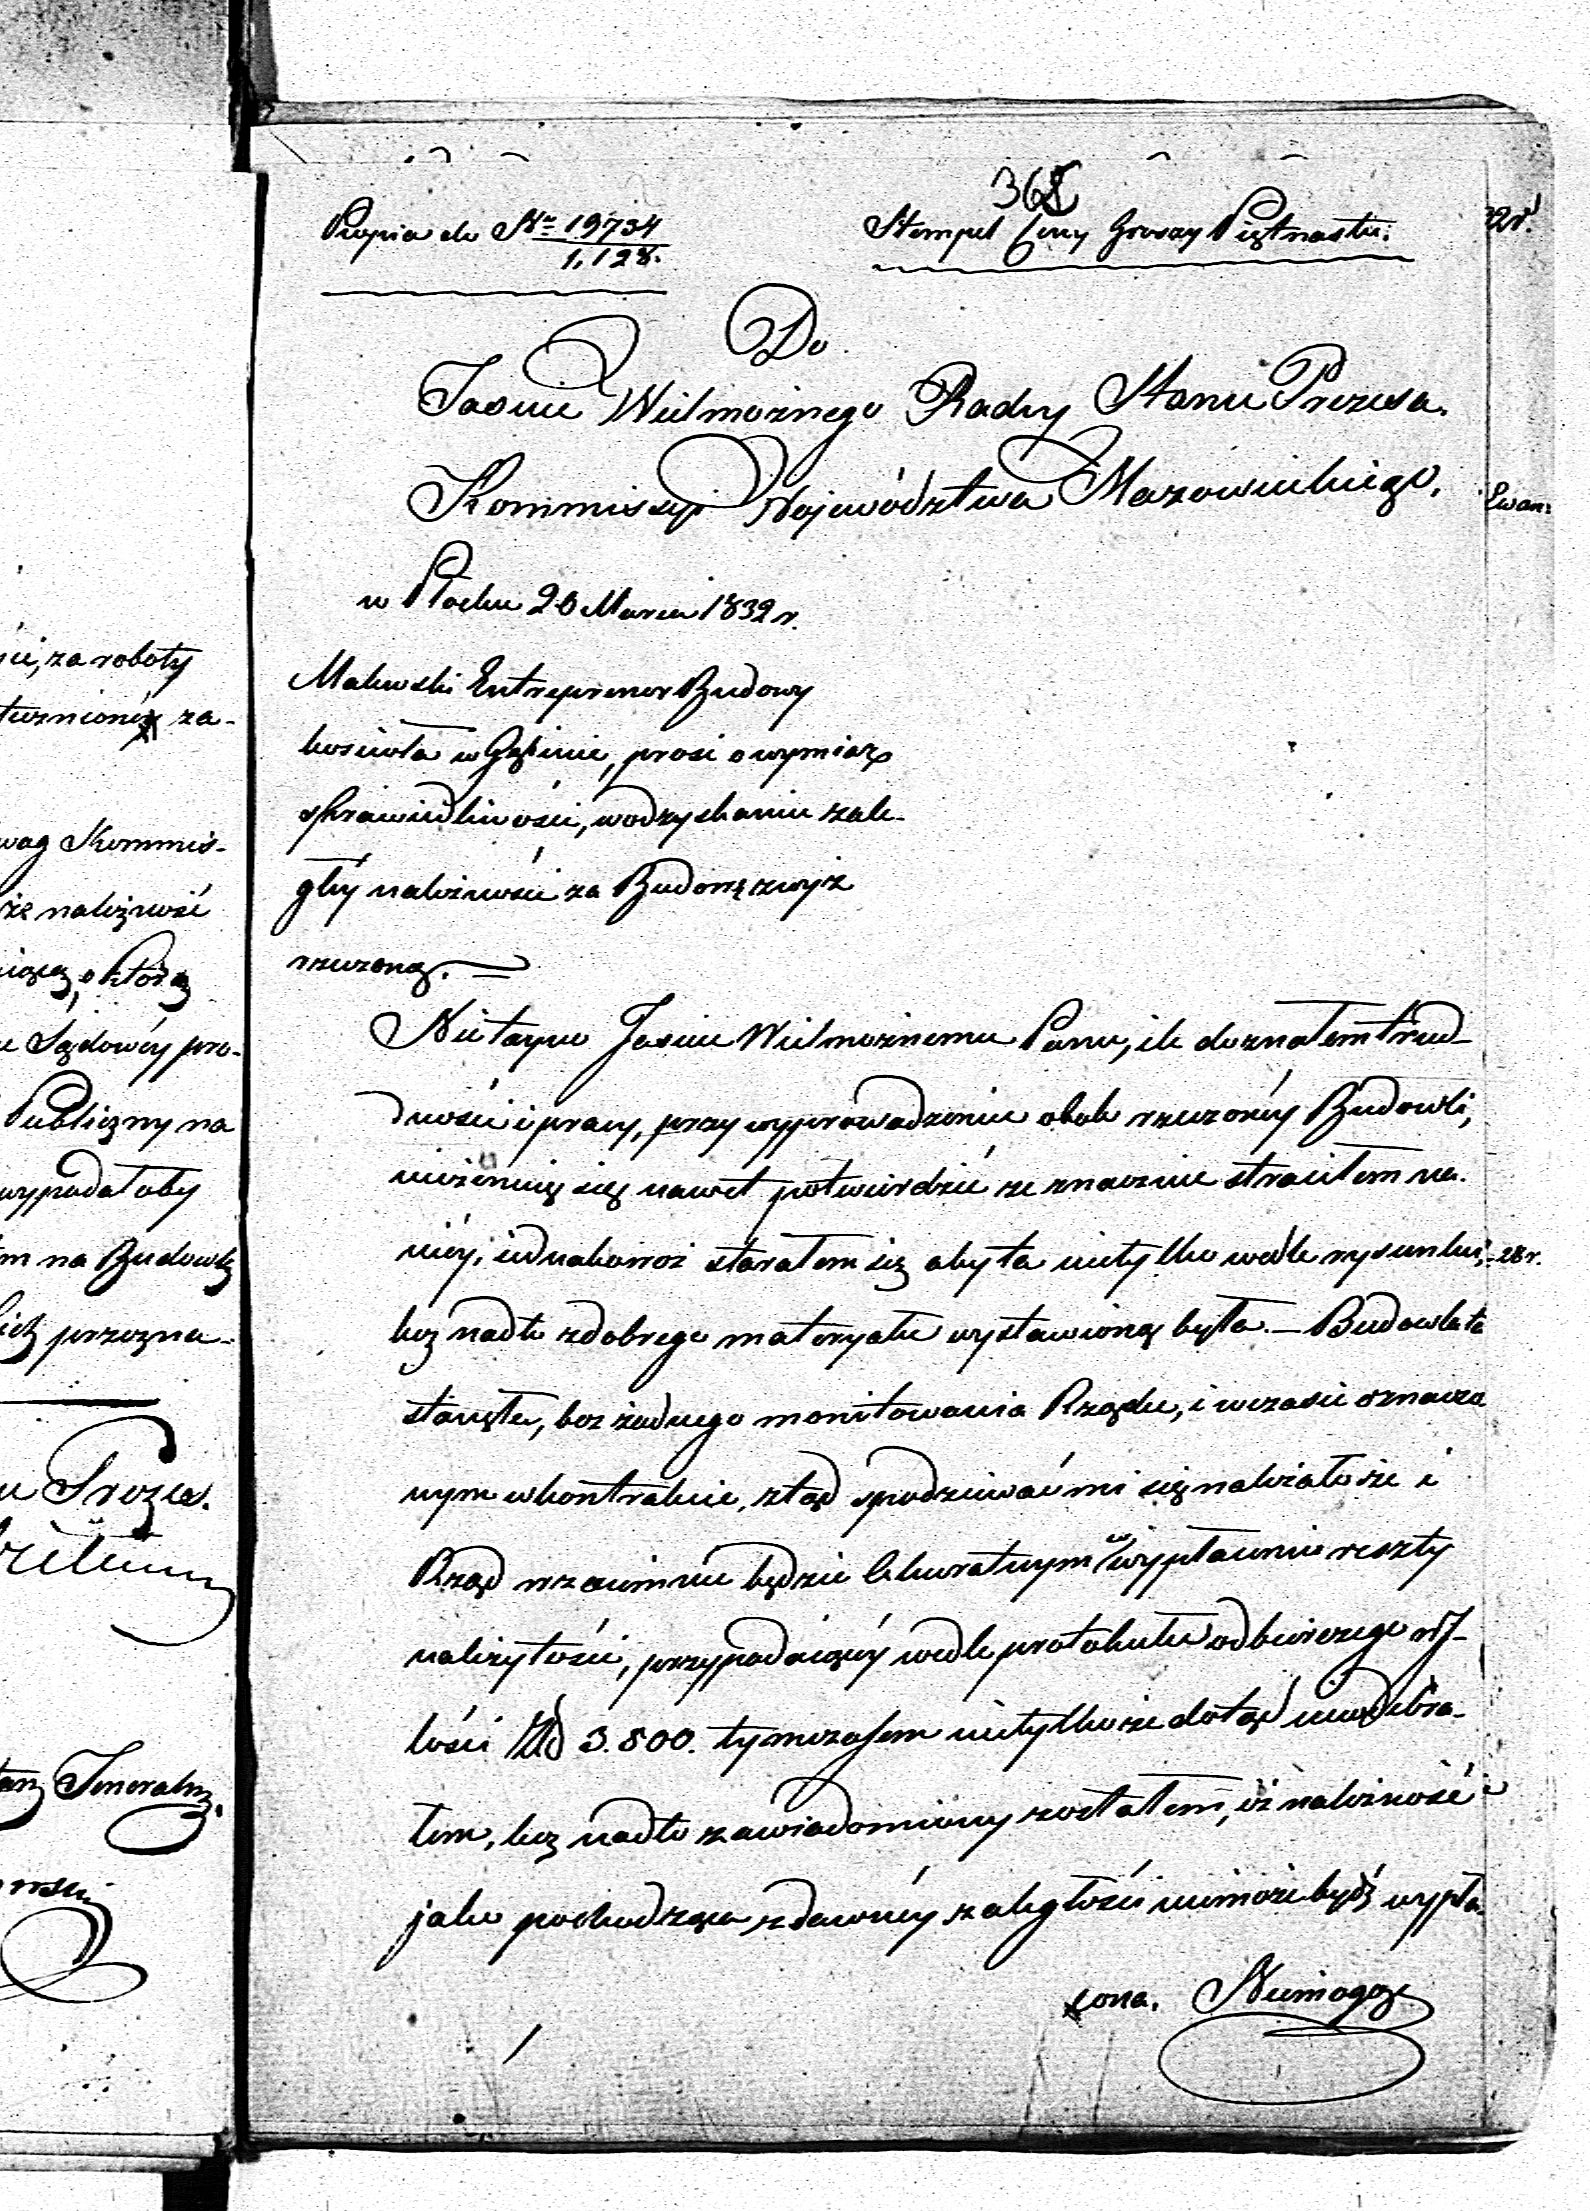 368
Kopia do Nro 19734
1,128.
Stempel Ceny Groszy Piętnastu.
Do
Jaśnie Wielmożnego Radcy Stanu Prezesa
Kommissyi Województwa Mazowieckiego.
w Płocku 20 Marca 1832 r.
Malewski Entreprenor Budowy
kościoła w Gąbinie, prosi o wymiar
sprawiedliwości, w odzyskaniu zale-
głéy należności za Budowę zwyż
rzeczoną.
Nie tayne Jaśnie Wielmożnemu Panu, ile doznałem trud-
dności i pracy, przy wyprowadzeniu obok rzeczonéy Budowli,
nieżenuię się nawet potwierdzić że znacznie straciłem na
niéy, iednakowoż starałem się aby ta nietylko wedle rysunku,
lecz nadto z dobrego materyału wystawioną była. — Budowla ta
stanęła, bez żadnego monitowania Rządu, i w czasie oznaczo
nym w kontrakcie, ztąd spodziewać mi się należało że i
Rząd wzaiemnie będzie akuratnym w wypłacaniu reszty
należytości, przypadaiącéy wedle protokułu odbiorczego w J-
lości Złł 3.800. tymczasem nietylko że dotąd nieodebra-
łem, lecz nadto zawiadomiony zostałem, iż należność
jako pochodząca z dawnéy zaległości niemoże być wypła
cona. Niemogę
ści, za roboty
za-
wag Kommis-
że należność
o którą
Sądowéy pro-
Publiczny na
wypadałoby
na Budowlę
przezna-
Prezes
Jeneralny
28 r.